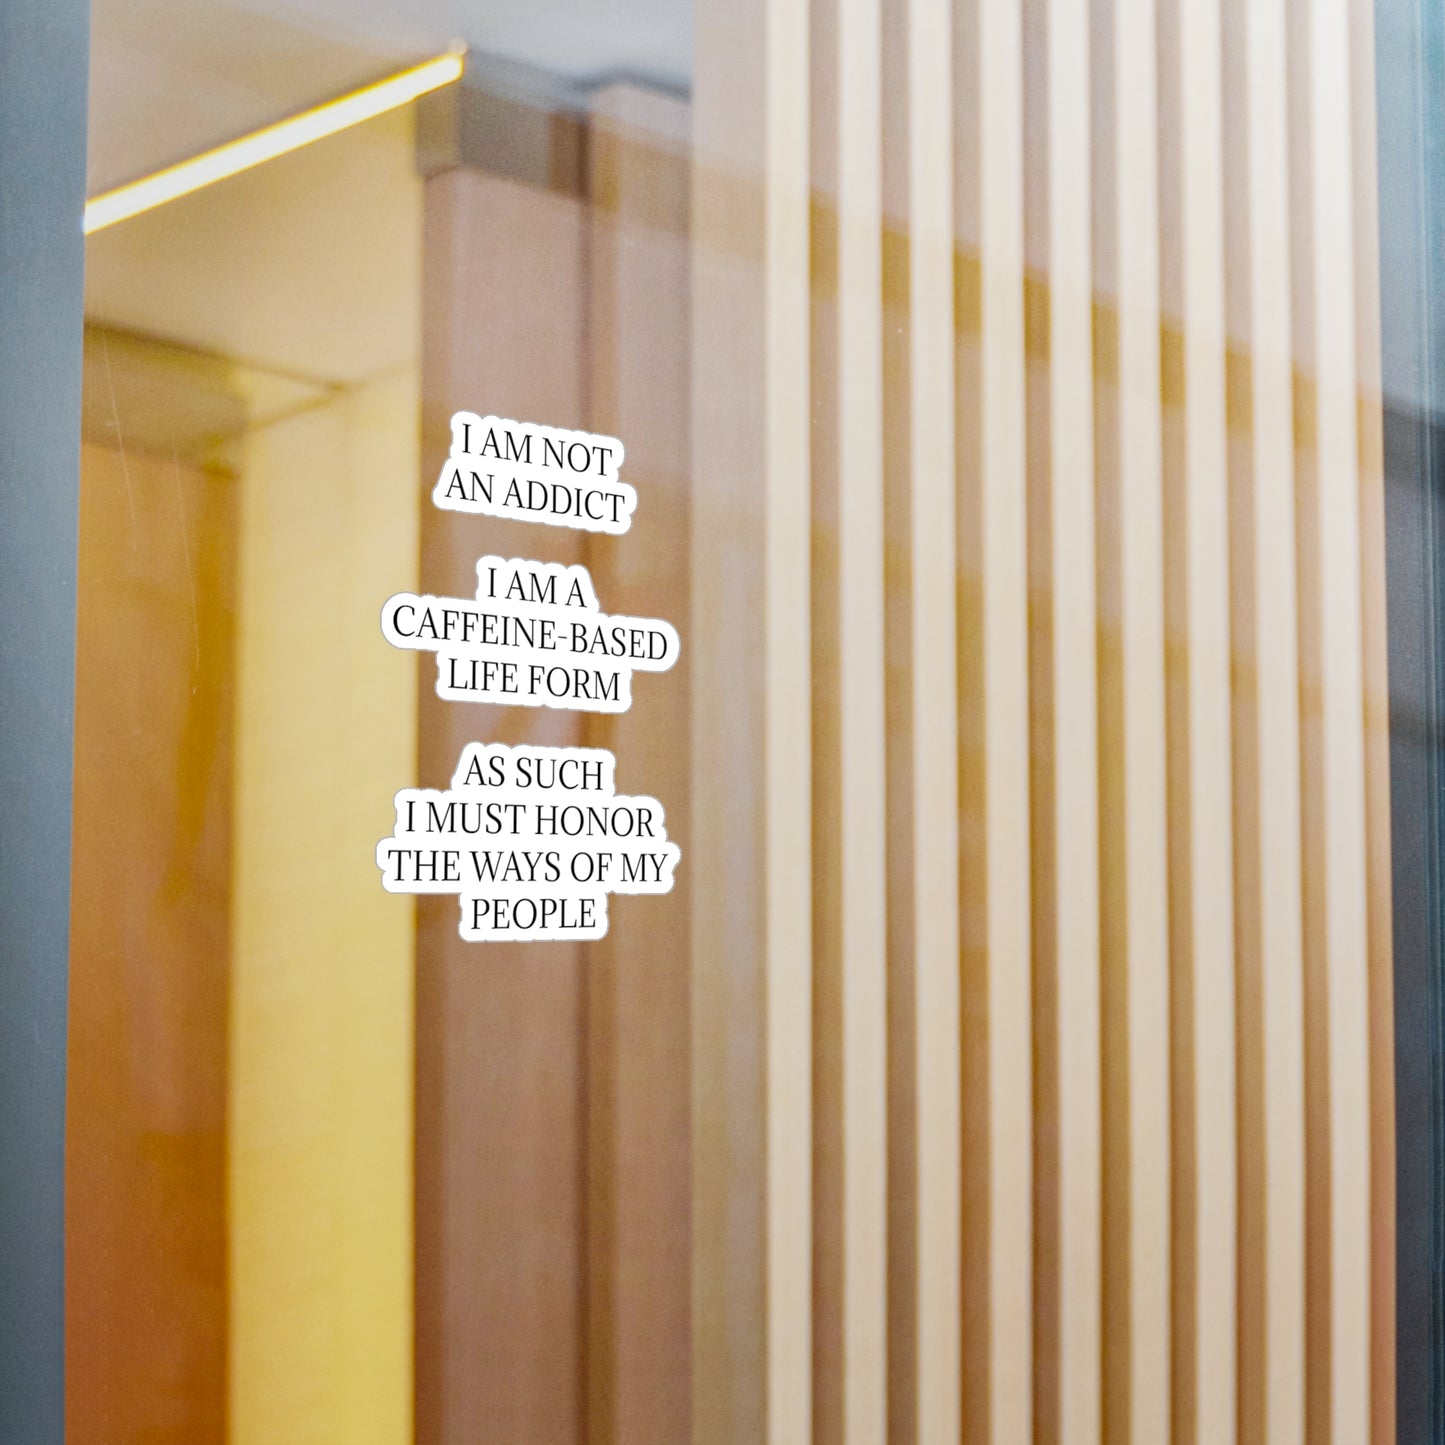 I AM NOT
AN ADDICT
I AM A
CAFFEINE-BASED
LIFE FORM
AS SUCH
I MUST HONOR
THE WAYS OF MY
PEOPLE